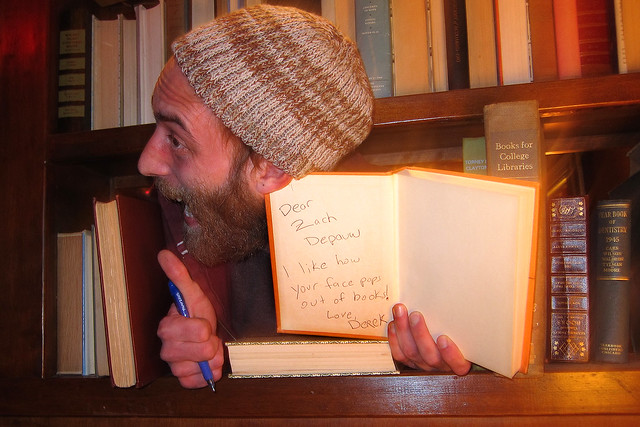 Books for
College
Libraries
Dear
Zach
Depauw
I like how
your face pops
out of books!
Love,
Derek
YEAR BOOK
OF
DENTISTRY
1945